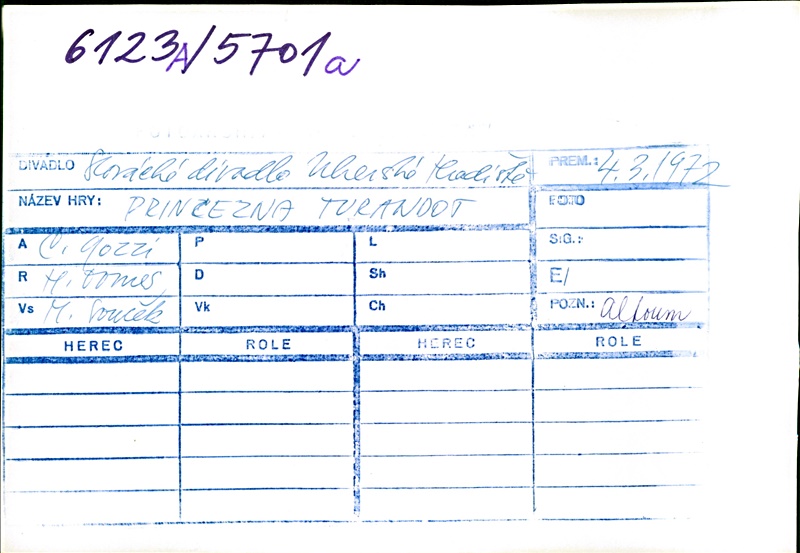 6123A/5701a
DIVADLO Slovácké divadlo Uherské Hradiště PREM.: 4.3.1972
NÁZEV HRY: PRINCEZNA TURANDOT FOTO
A C. Gozzi P L SIG.:
R M. Domes D Sh E/
Vs M. Souček Vk Ch POZN.: album
HEREC ROLE HEREC ROLE